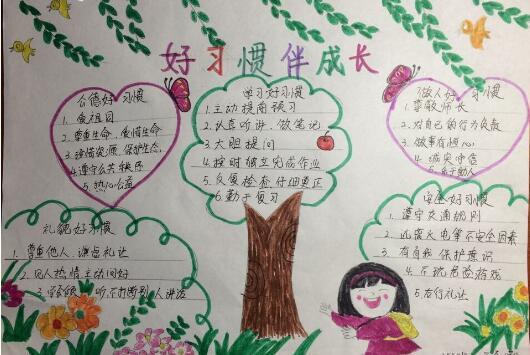 好习惯伴成长
公德好习惯
1. 爱祖国
2. 尊重生命,爱惜生命
3. 珍惜资源,保护生态.
4. 遵守公共秩序
5. 热心公益
学习好习惯
1. 主动提前预习
2. 认真听讲,做笔记
3. 大胆提问
4. 按时独立完成作业
5. 反复检查仔细更正
6. 勤于复习
做人好习惯
1. 尊敬师长
2. 对自己的行为负责
3. 做事有恒心
4. 诚实守信
5. 乐于助人
礼貌好习惯
1. 尊重他人,谦恭礼让
2. 见人热情主动问好
3. 听,不打断别人讲话
安全好习惯
1. 遵守交通规则
2. 火电等不安全因素
3. 有自我保护意识
4. 不玩危险游戏
5. 友行礼让